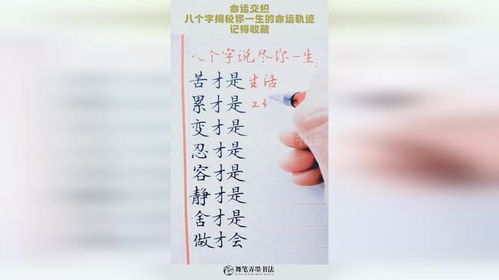 命运交织
八个字揭秘你一生的命运轨迹
记得收藏
八个字说尽你一生,
苦才是生活
累才是
变才是
忍才是
容才是
静才是
舍才是
做才会
舞笔弄墨书法